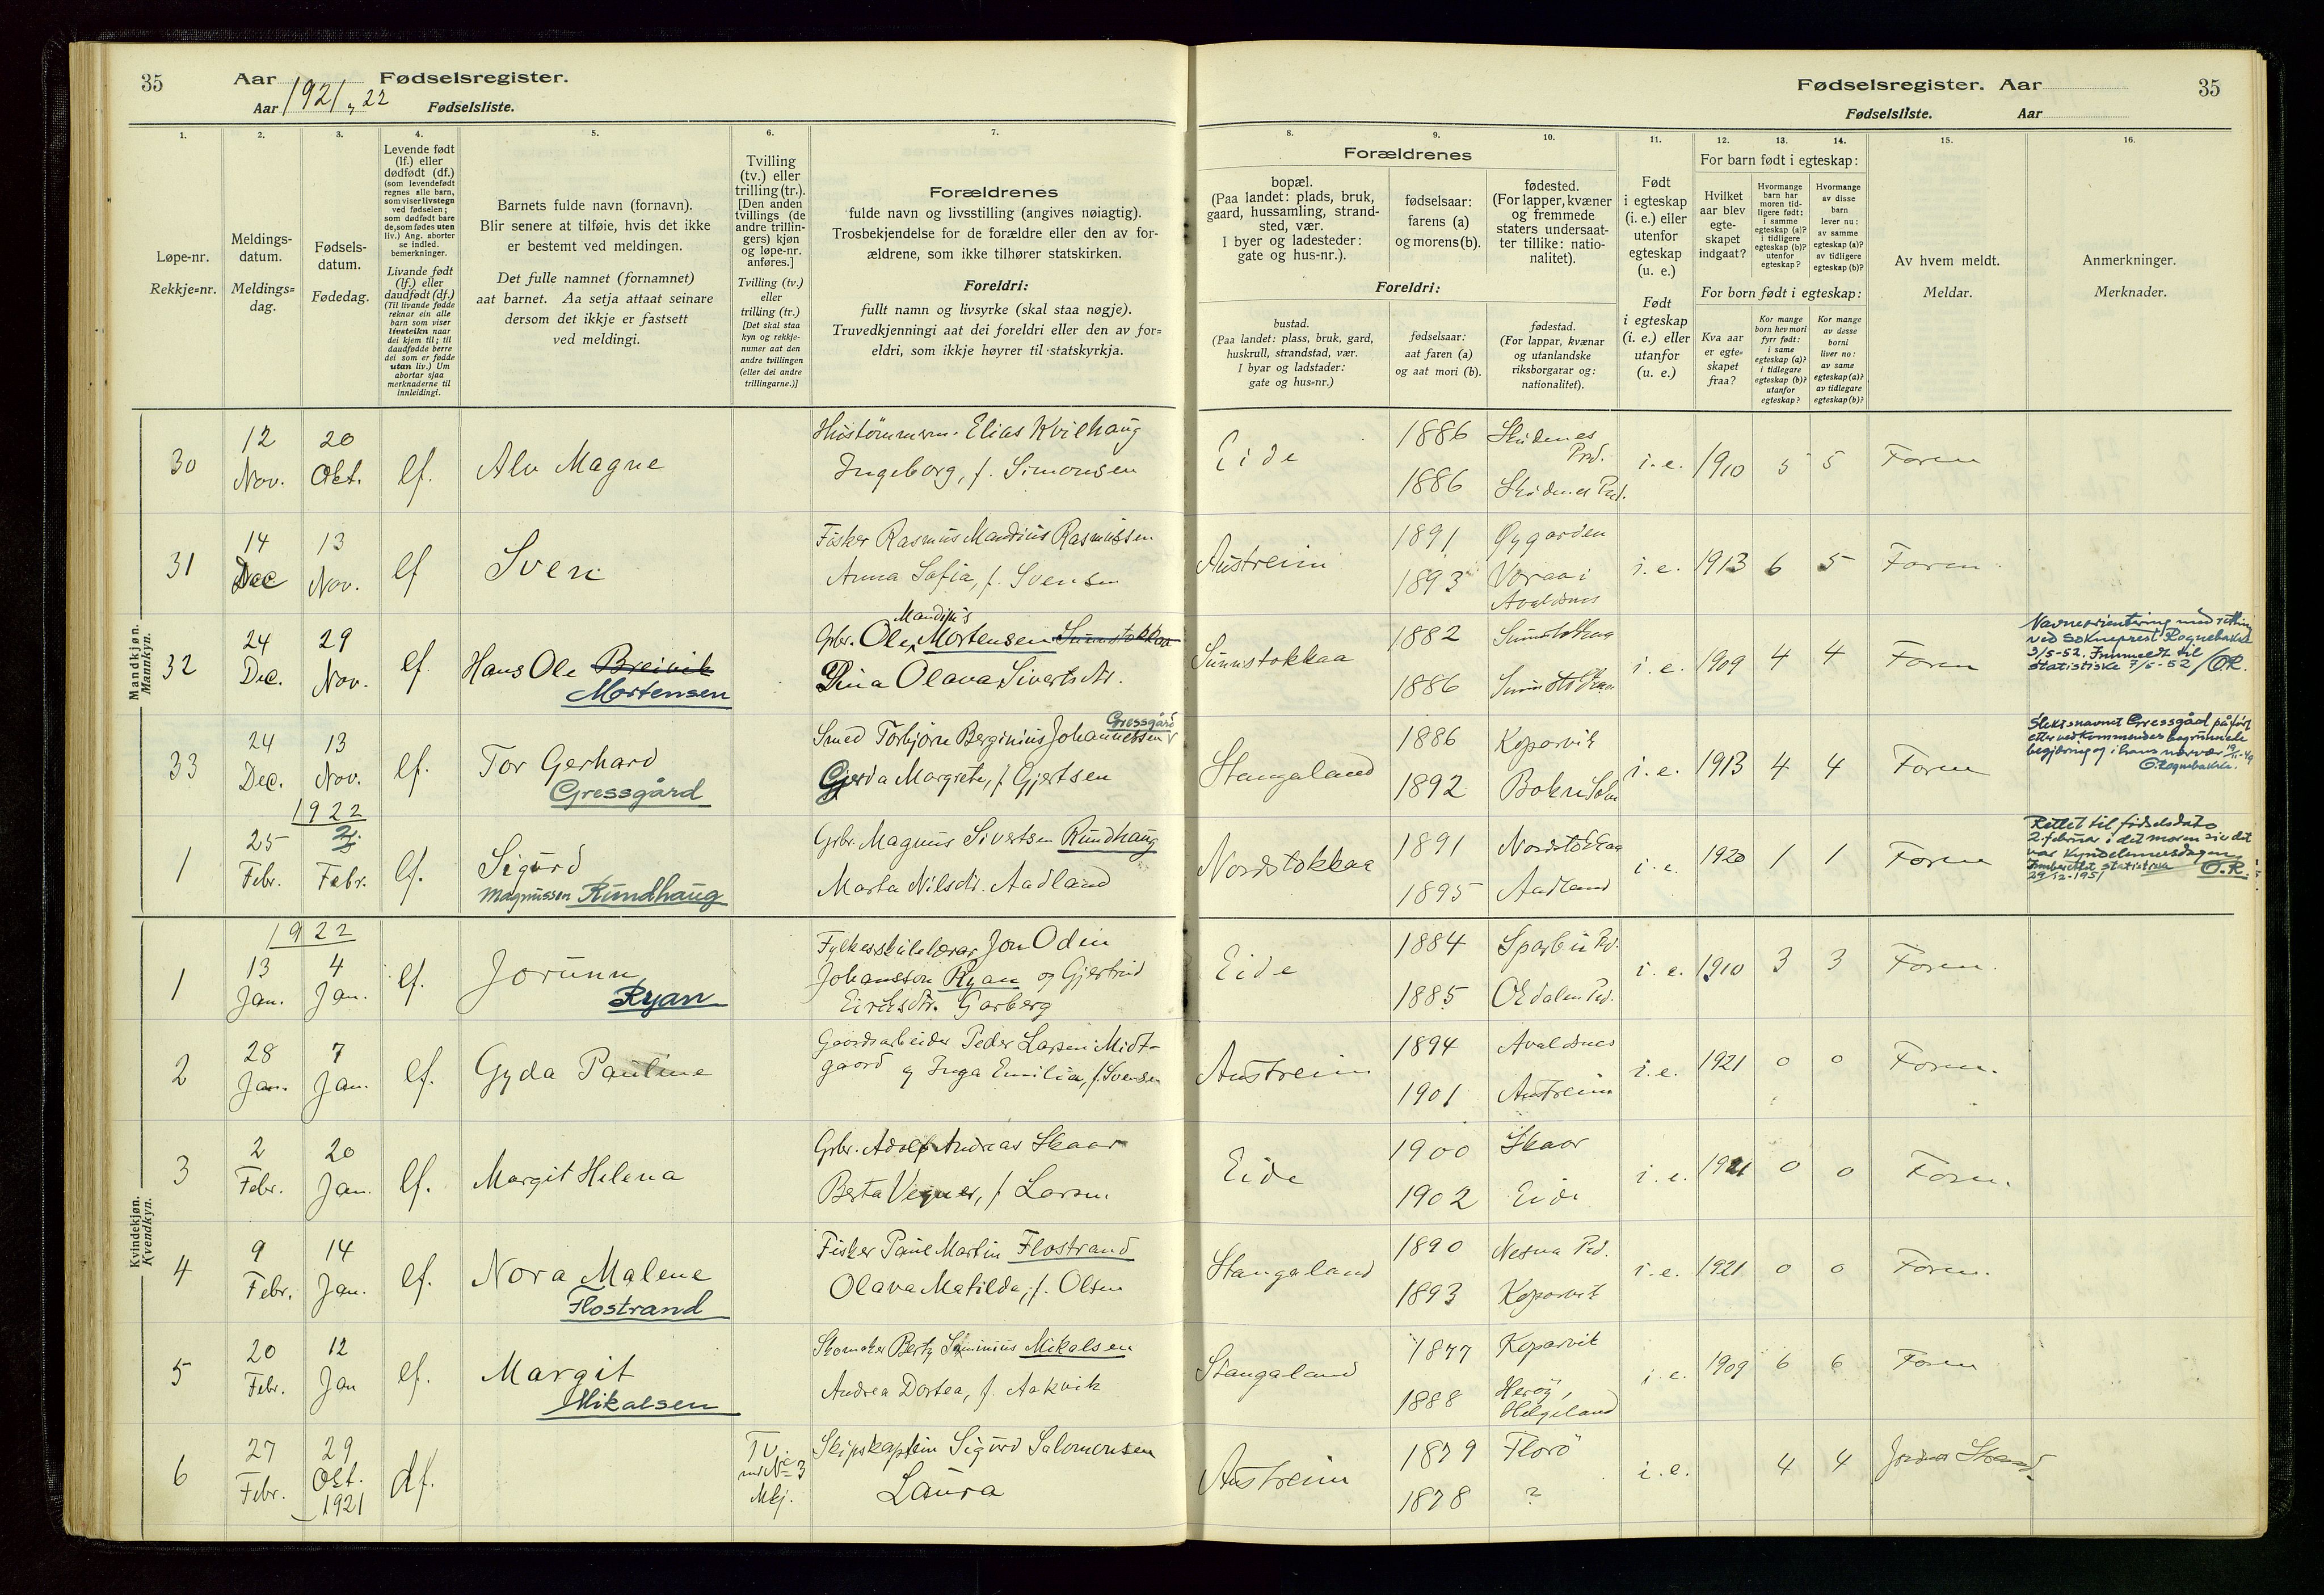 35 Aar 1921, 22 Fødselsregister.
Aar Fødselsliste.
1. 2. 3. 4. 5. 6. 7.
Løpe-nr.
Rekkje=nr.
Meldings-
datum.
Meldings=
dag.
Fødsels-
datum.
Fødedag.
Levende født
(lf.) eller
dødfødt (df.)
(som levendefødt
regnes alle barn,
som viser livstegn
ved fødselen;
som dødfødt bare
de, som fødes uten
liv.) Ang. aborter
se indled.
bemerkninger.
Livande født
(lf.) eller
daudfødt (df.)
(Til livande fødde
reknar ein alle
barn som viser
livsteikn naar
dei kjem til; til
daudfødde berre
dei som er fødde
utan liv.) Um
abortar sjaa
merknaderne til
innleidingi.
Barnets fulde navn (fornavn).
Blir senere at tilføie, hvis det ikke
er bestemt ved meldingen.
Det fulle namnet (fornamnet)
aat barnet. Aa setja attaat seinare
dersom det ikkje er fastsett
ved meldingi.
Tvilling
(tv.) eller
trilling (tr.).
[Den anden
tvillings (de
andre trillin-
gers) kjøn
og løpe-nr.
anføres.]
Tvilling (tv.)
eller
trilling (tr.)
[Det skal staa
kyn og rekkje-
numer aat den
andre tvillingen
(eller dei andre
trillingarne.)]
Forældrenes
fulde navn og livsstilling (angives nøiagtig).
Trosbekjendelse for de forældre eller den av for-
ældrene, som ikke tilhører statskirken.
Foreldri:
fullt namn og livsyrke (skal staa nøgje).
Truvedkjenningi aat dei foreldri eller den av for=
eldri, som ikkje høyrer til statskyrkja.
Mandkjøn.
Mannkyn.
30 12 Nov. 20 Okt. lf. Alv Magne
Elias Kvilhaug
Ingeborg, f. Simonsen
31 14 Dec 13 Nov. lf Sven
Fisker Rasmus Mandius Rasmussen
Anna Sofia, f. Svensen
32 24 Dec. 29 Nov. lf. Hans Ole Breivik
Mortensen
Mandius
Gbr. Ole Mortensen Sunnstokkaa
Dina Olava Sivertsdtr.
33 24 Dec. 13 Nov. lf. Tor Gerhard
Gressgård
Gressgård
Smed Torbjørn Berginius Johannessen
Gjerda Margrete, f. Gjertsen
1922
1 25 Febr. 2. Febr. lf. Sigurd
Magnussen Rundhaug
Gbr. Magnus Sivertsen Rundhaug
Marta Nilsdtr. Aadland
Kvindekjøn.
Kvendkyn.
1922
1 13 Jan. 4 Jan. lf. Jorunn
Ryan
Fylkesskulelærar Jon Odin
Johansson Ryan og Gjertrud
Eiriksdtr. Garberg
2 28 Jan. 7 Jan. lf. Gyda Pauline
Gaardsarbeider Peder Larsen Midt-
gaard og Inga Emilia, f. Svensen
3 2 Febr. 20 Jan. lf. Margit Helena
Gbr. Adolf Andreas Skaar
Berta, f. Larsen
4 9 Febr. 14 Jan. lf. Nora Malene
Flostrand
Fisker Paul Martin Flostrand
Olava Matilda, f. Olsen
5 20 Febr. 12 Jan lf. Margit
Mikalsen
Skomaker Mikalsen
Andrea Dortea, f. Aakvik
6 27 Febr. 29 Okt. 1921 df.
Tv. med No 3 Mkj.
Skipskaptein Sigurd Salomonsen
Laura
Fødselsregister. Aar 35
Fødselsliste. Aar
8. 9. 10. 11. 12. 13. 14. 15. 16.
Forældrenes
bopæl.
(Paa landet: plads, bruk,
gaard, hussamling, strand-
sted, vær.
I byer og ladesteder:
gate og hus-nr.).
fødselsaar:
farens (a)
og morens (b).
fødested.
(For lapper, kvæner
og fremmede
staters undersaat-
ter tillike: natio-
nalitet).
Foreldri:
bustad.
(Paa landet: plass, bruk, gard,
huskrull, strandstad, vær.
I byar og ladstader:
gate og hus=nr.)
fødselsaar:
aat faren (a)
og aat mori (b).
fødestad.
(For lappar, kvænar
og utanlandske
riksborgarar og:
nationalitet).
Født
i egteskap
(i. e.) eller
utenfor
egteskap
(u. e.)
Født
i egteskap
(i. e.) eller
utanfor
(u. e.)
For barn født i egteskap:
Hvilket
aar blev
egte-
skapet
indgaat?
Hvormange
barn har
moren tid-
ligere født:
i samme
egteskap (a)?
i tidligere
egteskap (b)?
utenfor
egteskap?
Hvormange
av disse
barn
lever nu:
av samme
egteskap (a)?
av tidligere
egteskap (b)?
For born født i egteskap:
Kva aar
er egte=
skapet
fraa?
Kor mange
born hev mori
fyrr født:
i same
egteskap (a)?
i tidlegare
egteskap (b)?
utanfor
egteskap?
Kor mange
av desse
borni
liver no:
av same
egteskap (a)?
av tidlegare
egteskap (b)?
Av hvem meldt.
Meldar.
Anmerkninger.
Merknader.
Eide 1886 Skudenes Prd. i. e. 1910 5 5 Faren
1886 Skudenes Prd.
Austreim 1891 Øygarden i. e. 1913 6 5 Faren
1893 Voraa i
Avaldsnes
Sunnstokkaa 1882 Sunnstokkaa i. e. 1909 4 4 Faren
1886 Sunnstokkaa
Navneorientering med retting
ved sokneprest Rognebakke
3/5-52. Innmeldt til
statistiske 7/5-52 / O.R.
Stangaland 1886 Kopervik i. e. 1913 4 4 Faren
1892 Bokn Sokn
Slektsnavnet Gressgård påført
etter vedkommendes begrunnede
begjæring og i hans nærvær
O. Rognebakke.
Nordstokkaa 1891 Nordstokkaa i. e. 1920 1 1 Faren
1895 Aadland
Rettet til fødselsdato
2 februar i det moren sier det
var Kyndelsmessdagen
Innberettet statistisk O.R.
29/12-1951
Eide 1884 Sparbu Prd. i. e. 1910 3 3 Faren.
1885 Prd.
Austreim 1894 Avaldsnes i. e. 1921 0 0 Faren.
1901 Austreim
Eide 1900 Skaar i. e. 1921 0 0 Faren.
1902 Eide
Stangaland 1890 Nesna Prd. i. e. 1921 0 0 Faren.
1893 Kopervik
Stangaland 1877 Kopervik i. e. 1909 6 6 Faren
1888 Herøy,
Helgeland
Austreim 1879 Florö i. e. 4 4
1878 ?